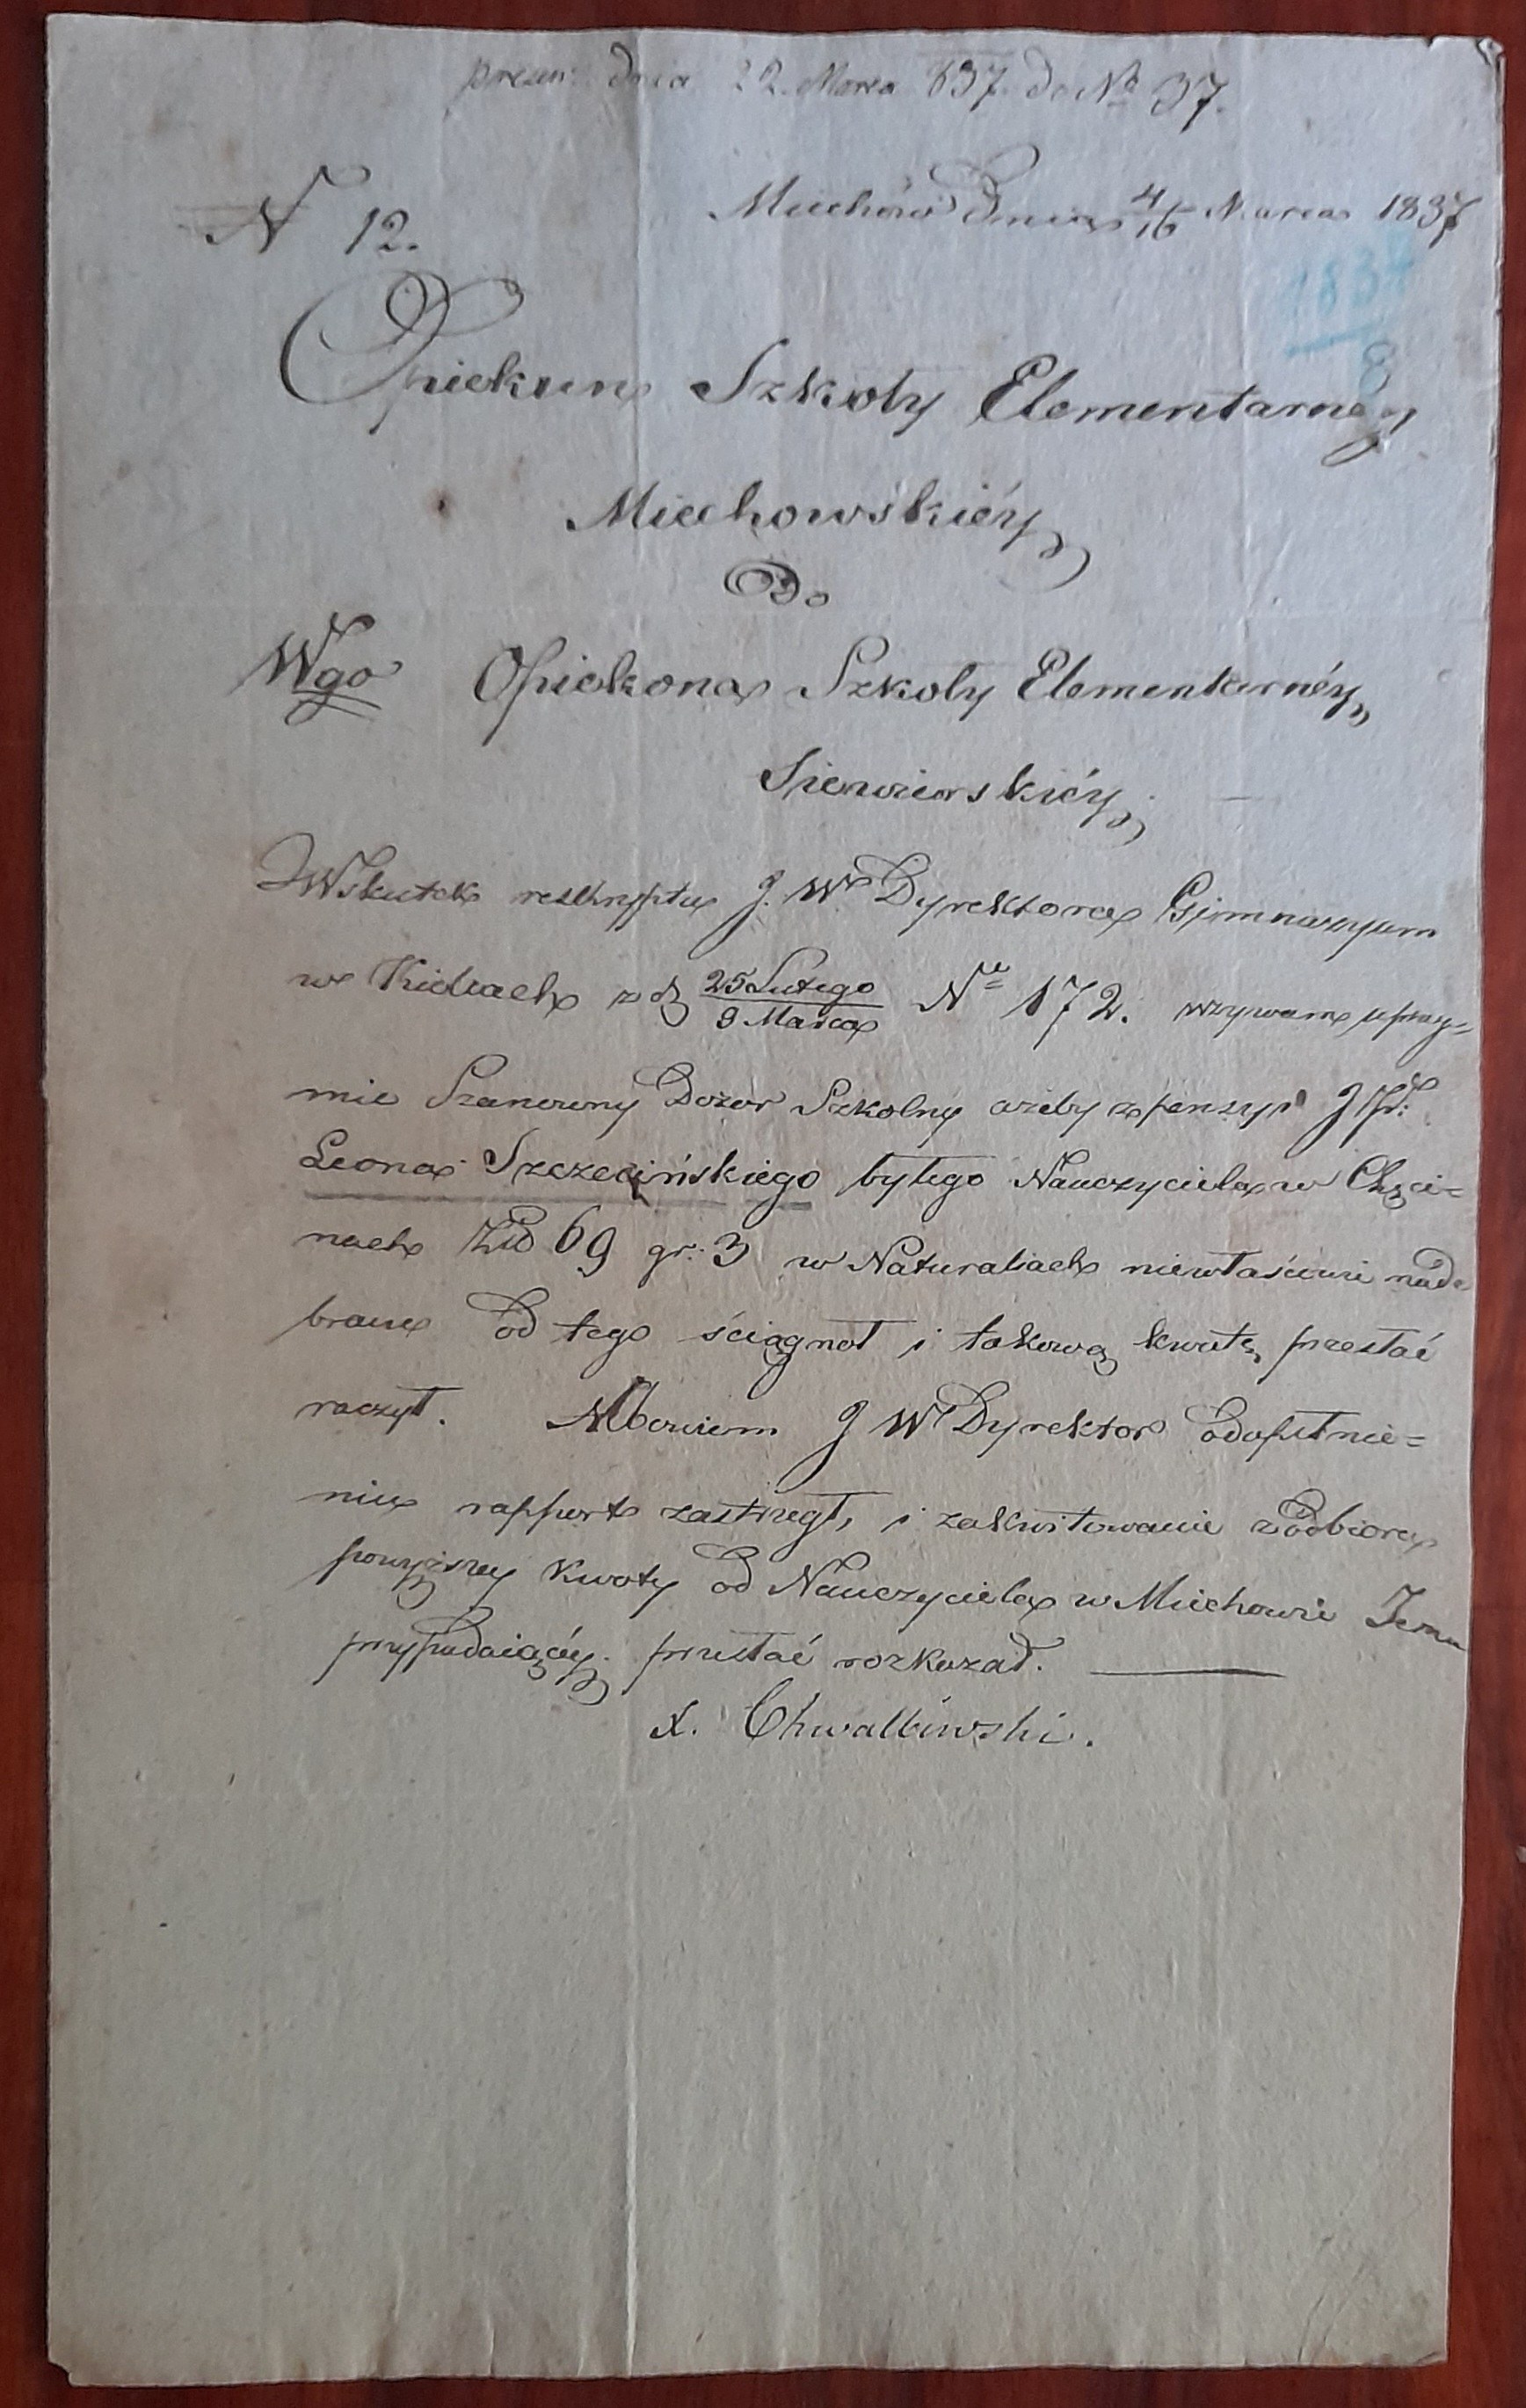 presen: dnia 22. Marca 837. do No 37.
N 12.
Miechów Dnia 4/16 Marca 1837
1837
8
Opiekun Szkoły Elementarney
Miechowskiéy
Do
Wgo Opiekona Szkoły Elementarnéy
Siewierskiéy
W skutek reskryptu J. W Dyrektora Gimnazyum
w Kielcach z d 25 Lutego / 9 Marca No 172. wzywam uprzey=
mie Szanowny Dozor Szkolny ażeby z pensyi J P:
Leona Szczecińskiego byłego Nauczyciela w Chęci=
nach Złp 69 gr: 3 w Naturaliach niewłaściwie nade
brane od tego ściągnoł i takową kwotę przesłać
raczył. Albowiem J W Dyrektor o dopełnie=
niu rapport zastrzegł, i zakwitowanie z odbioru
powyższey kwoty od Nauczyciela w Miechowie Jemu
przypadaiącéy przesłać rozkazał.
X. Chwalbiński.